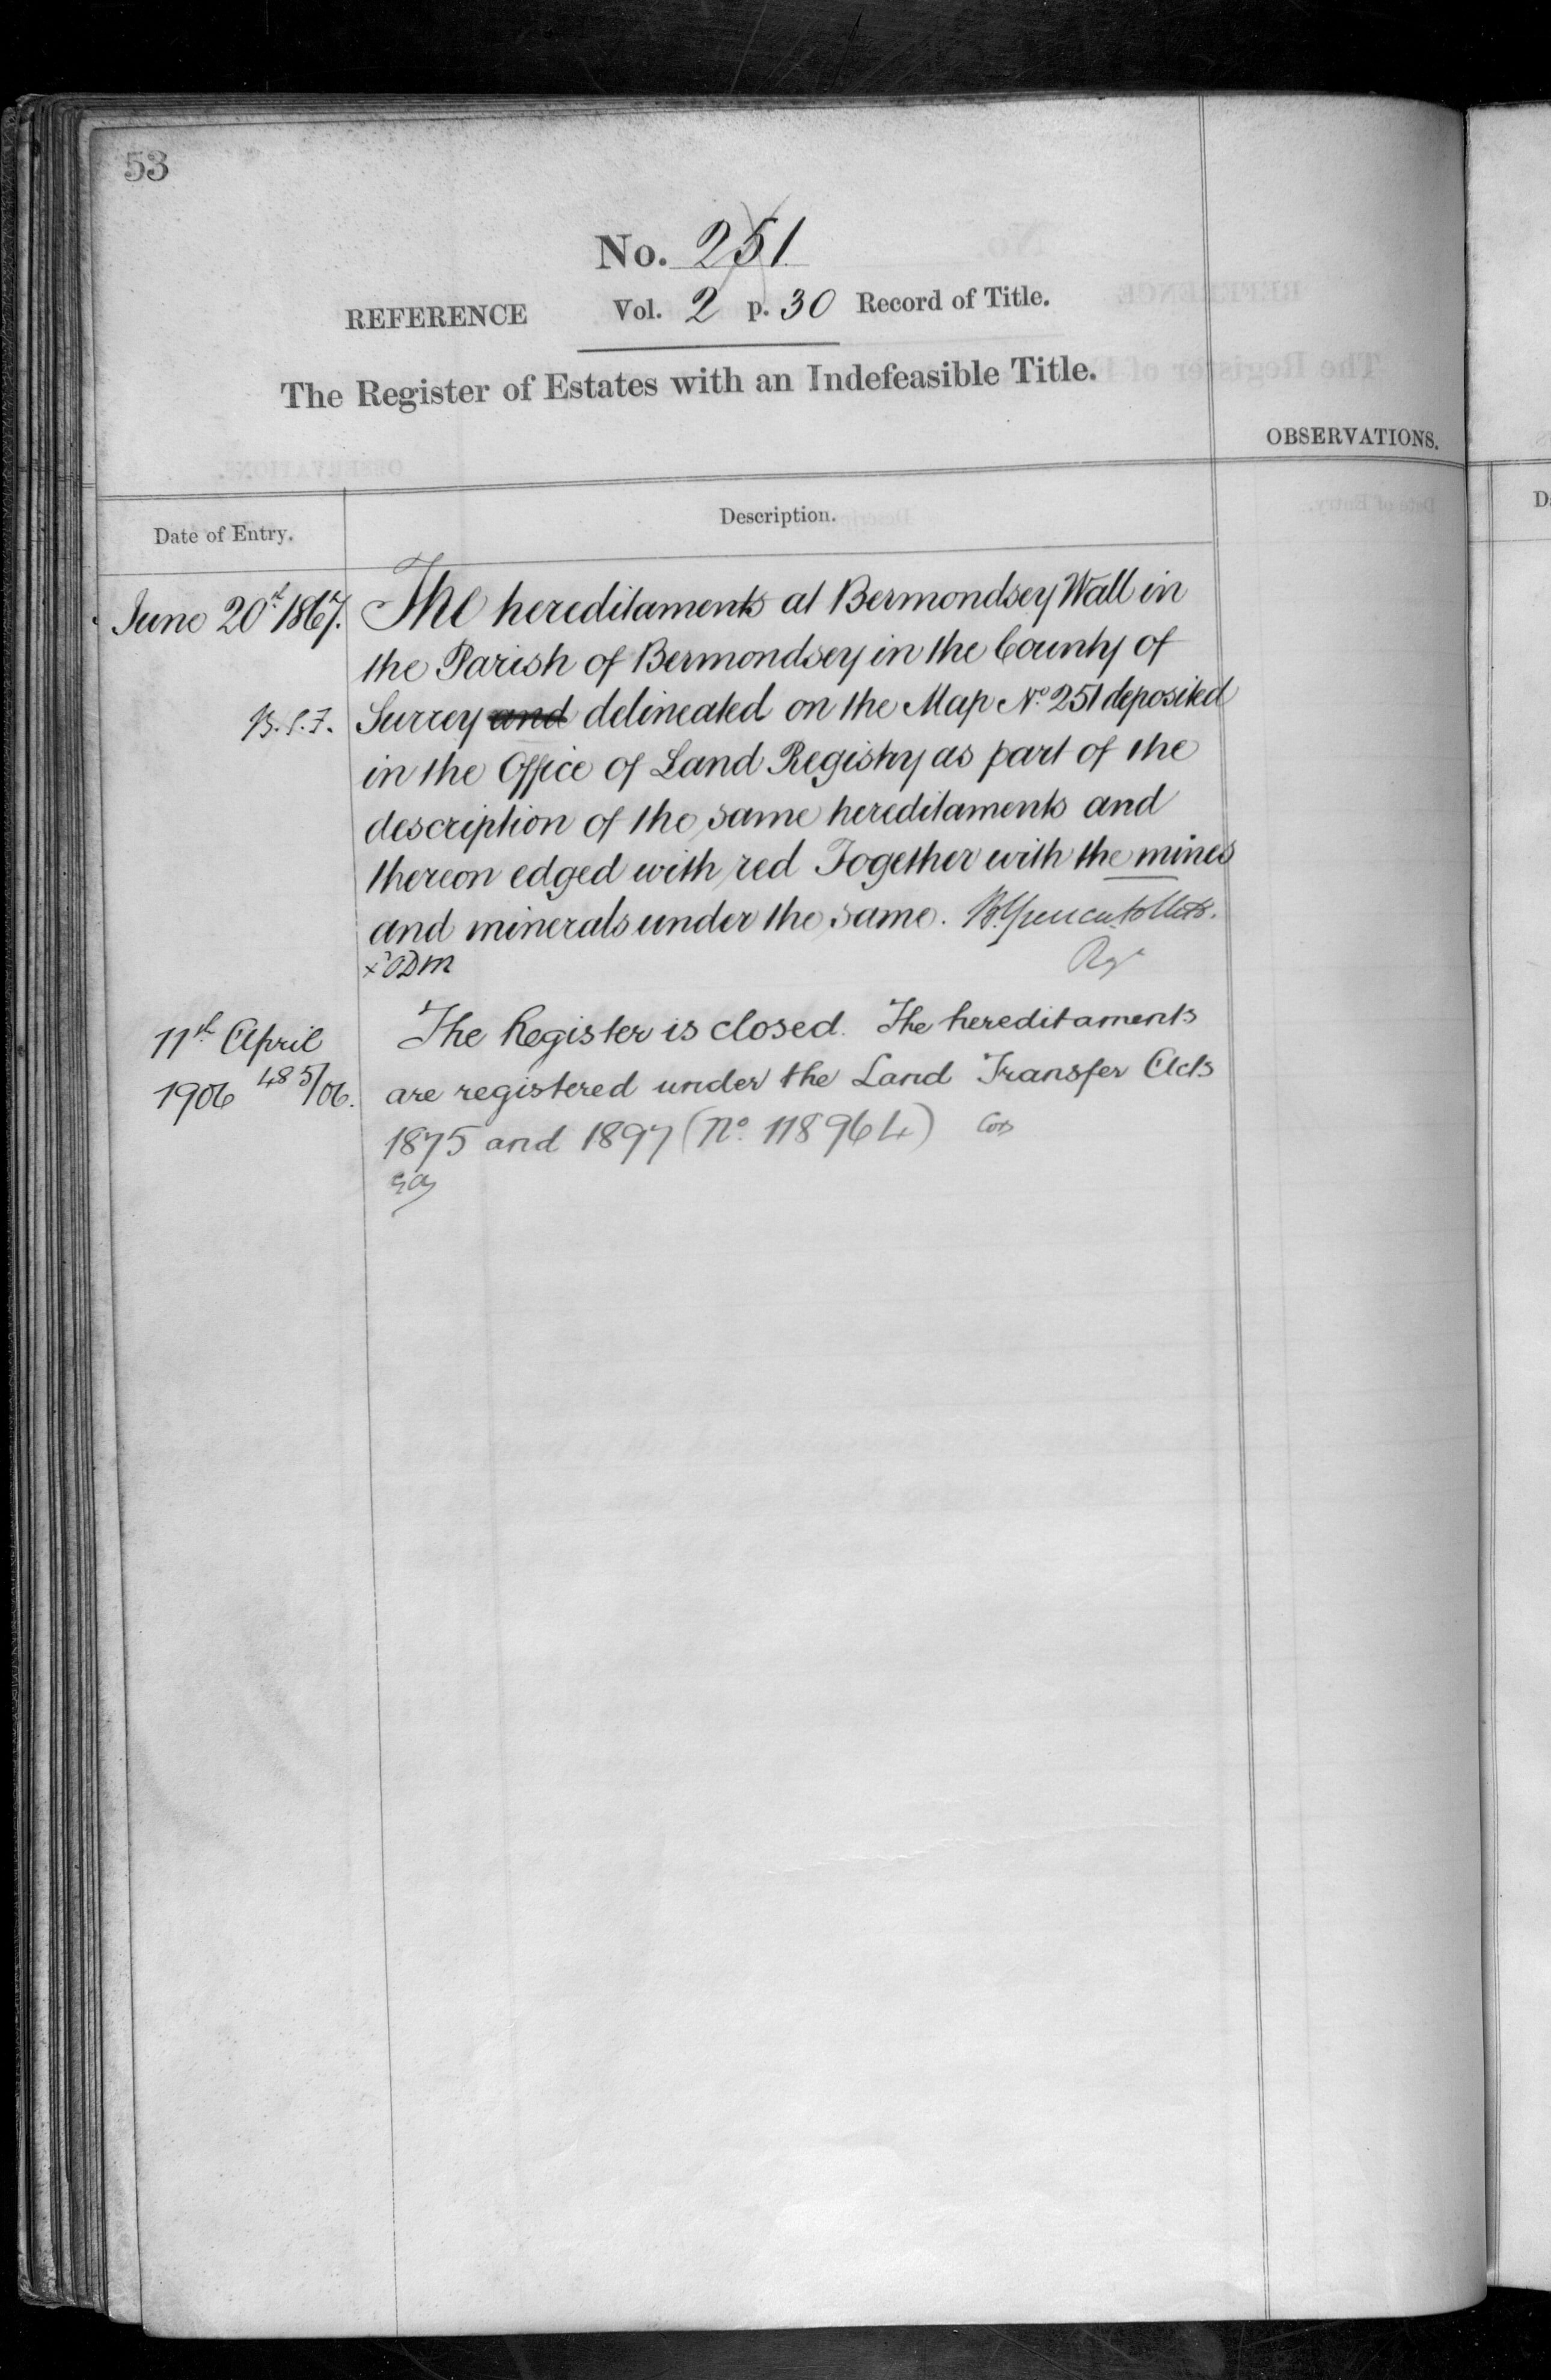 53
No. 251
REFERENCE Vol. 2 p. 30 Record of Title.
The Register of Estates with an Indefeasible Title.
OBSERVATIONS.
Date of Entry.
Description.
June 20th 1867. The hereditaments at Bermondsey Wall in
the Parish of Bermondsey in the County of
B.S.F. Surrey and delineated on the Map No. 251 deposited
in the Office of Land Registry as part of the
description of the same hereditaments and
thereon edged with red Together with the mines
and minerals under the same. Brent Spencer Follett.
Regr
x ODM
11th April The Register is closed. The hereditaments
1906 485/06. are registered under the Land Transfer Acts
1875 and 1897 (No. 118964)